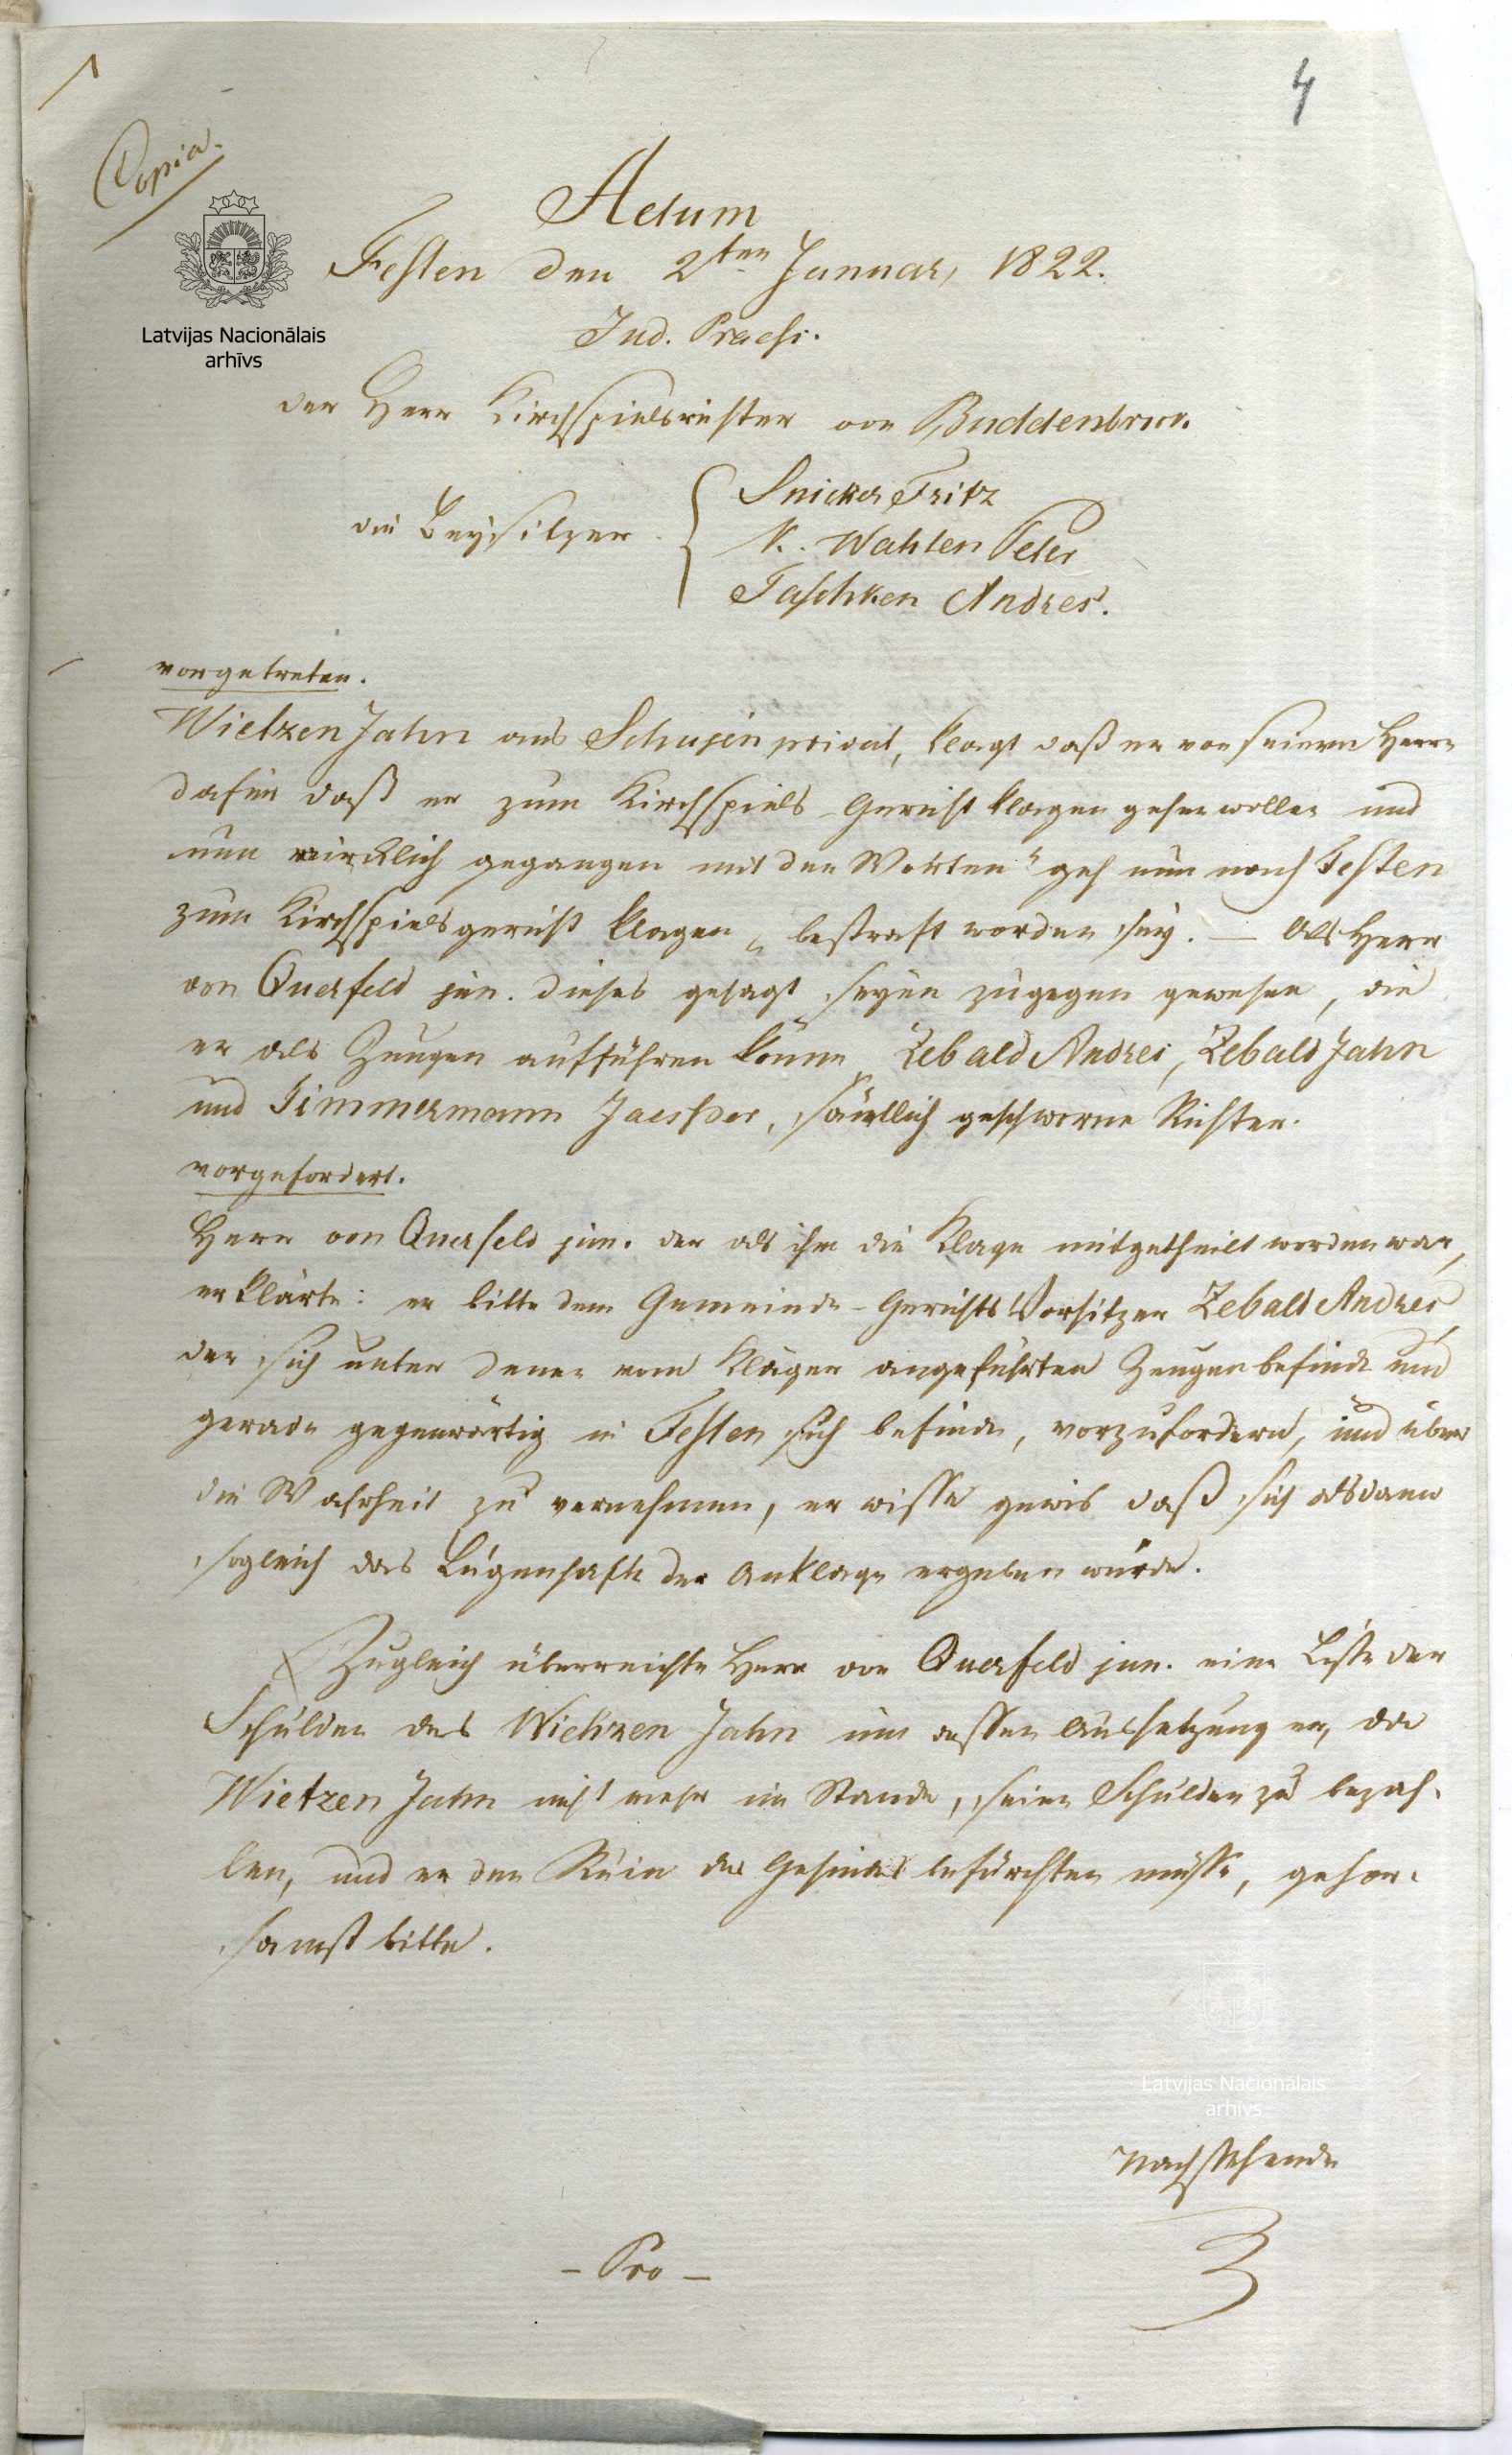 4
Copia.
Actum
Festen den 2ten Januar, 1822.
Jud. Praess.
Latvijas Nacionālais
arhīvs
der Herr Kirchspielsrichter von Buddenbrock.
die Beysitzer
Snicker Fritz
K. Wahlen Peter
Taschken Andres.
vorgetreten.
Wietzen Jahn aus Schujen privat, klagt daß er von seinem Herrn
dafür daß er zum Kirchspiels-Gericht klagen gehen wollen und
nun wircklich gegangen mit den Worten "geh nun nach Festen
zum Kirchspielsgericht klagen" bestraft worden sey. — Als Herr
von Querfeld jun. dieses gesagt seyen zugegen gewesen, die
er als Zeugen aufführen könne, Zebald Andres, Zebald Jahn
und Timmermann Jaesper, sämtlich geschworne Richter.
vorgefordert.
Herr von Querfeld jun. der als ihm die Klage mitgetheilt worden war,
erklärte: er bitte den Gemeinde-Gerichts Vorsitzer Zebald Andres
der sich unter denen vom Kläger angeführten Zeugen befinde und
gerade gegenwärtig in Festen sich befinde, vorzufordern, und über
die Wahrheit zu vernehmen, er wisse gewis daß sich alsdann
sogleich das Lügenhafte der Anklage ergeben würde.
Zugleich überreichte Herr von Querfeld jun. eine Liste der
Schulden des Wietzen Jahn um dessen Aussetzung er, da
Wietzen Jahn nicht mehr im Stande, seine Schulden zu bezah-
len, und er den Ruin des Gesindes befürchten müsse, gehor-
samst bitte.
Latvijas Nacionālais
arhīvs
Nachstehende
- Pro -